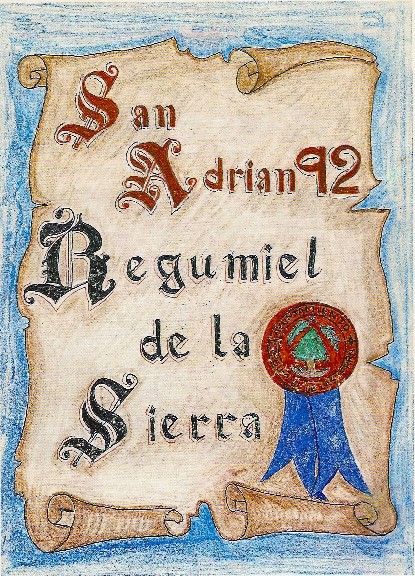 San
Adrian 92
Regumiel
de la
Sierra